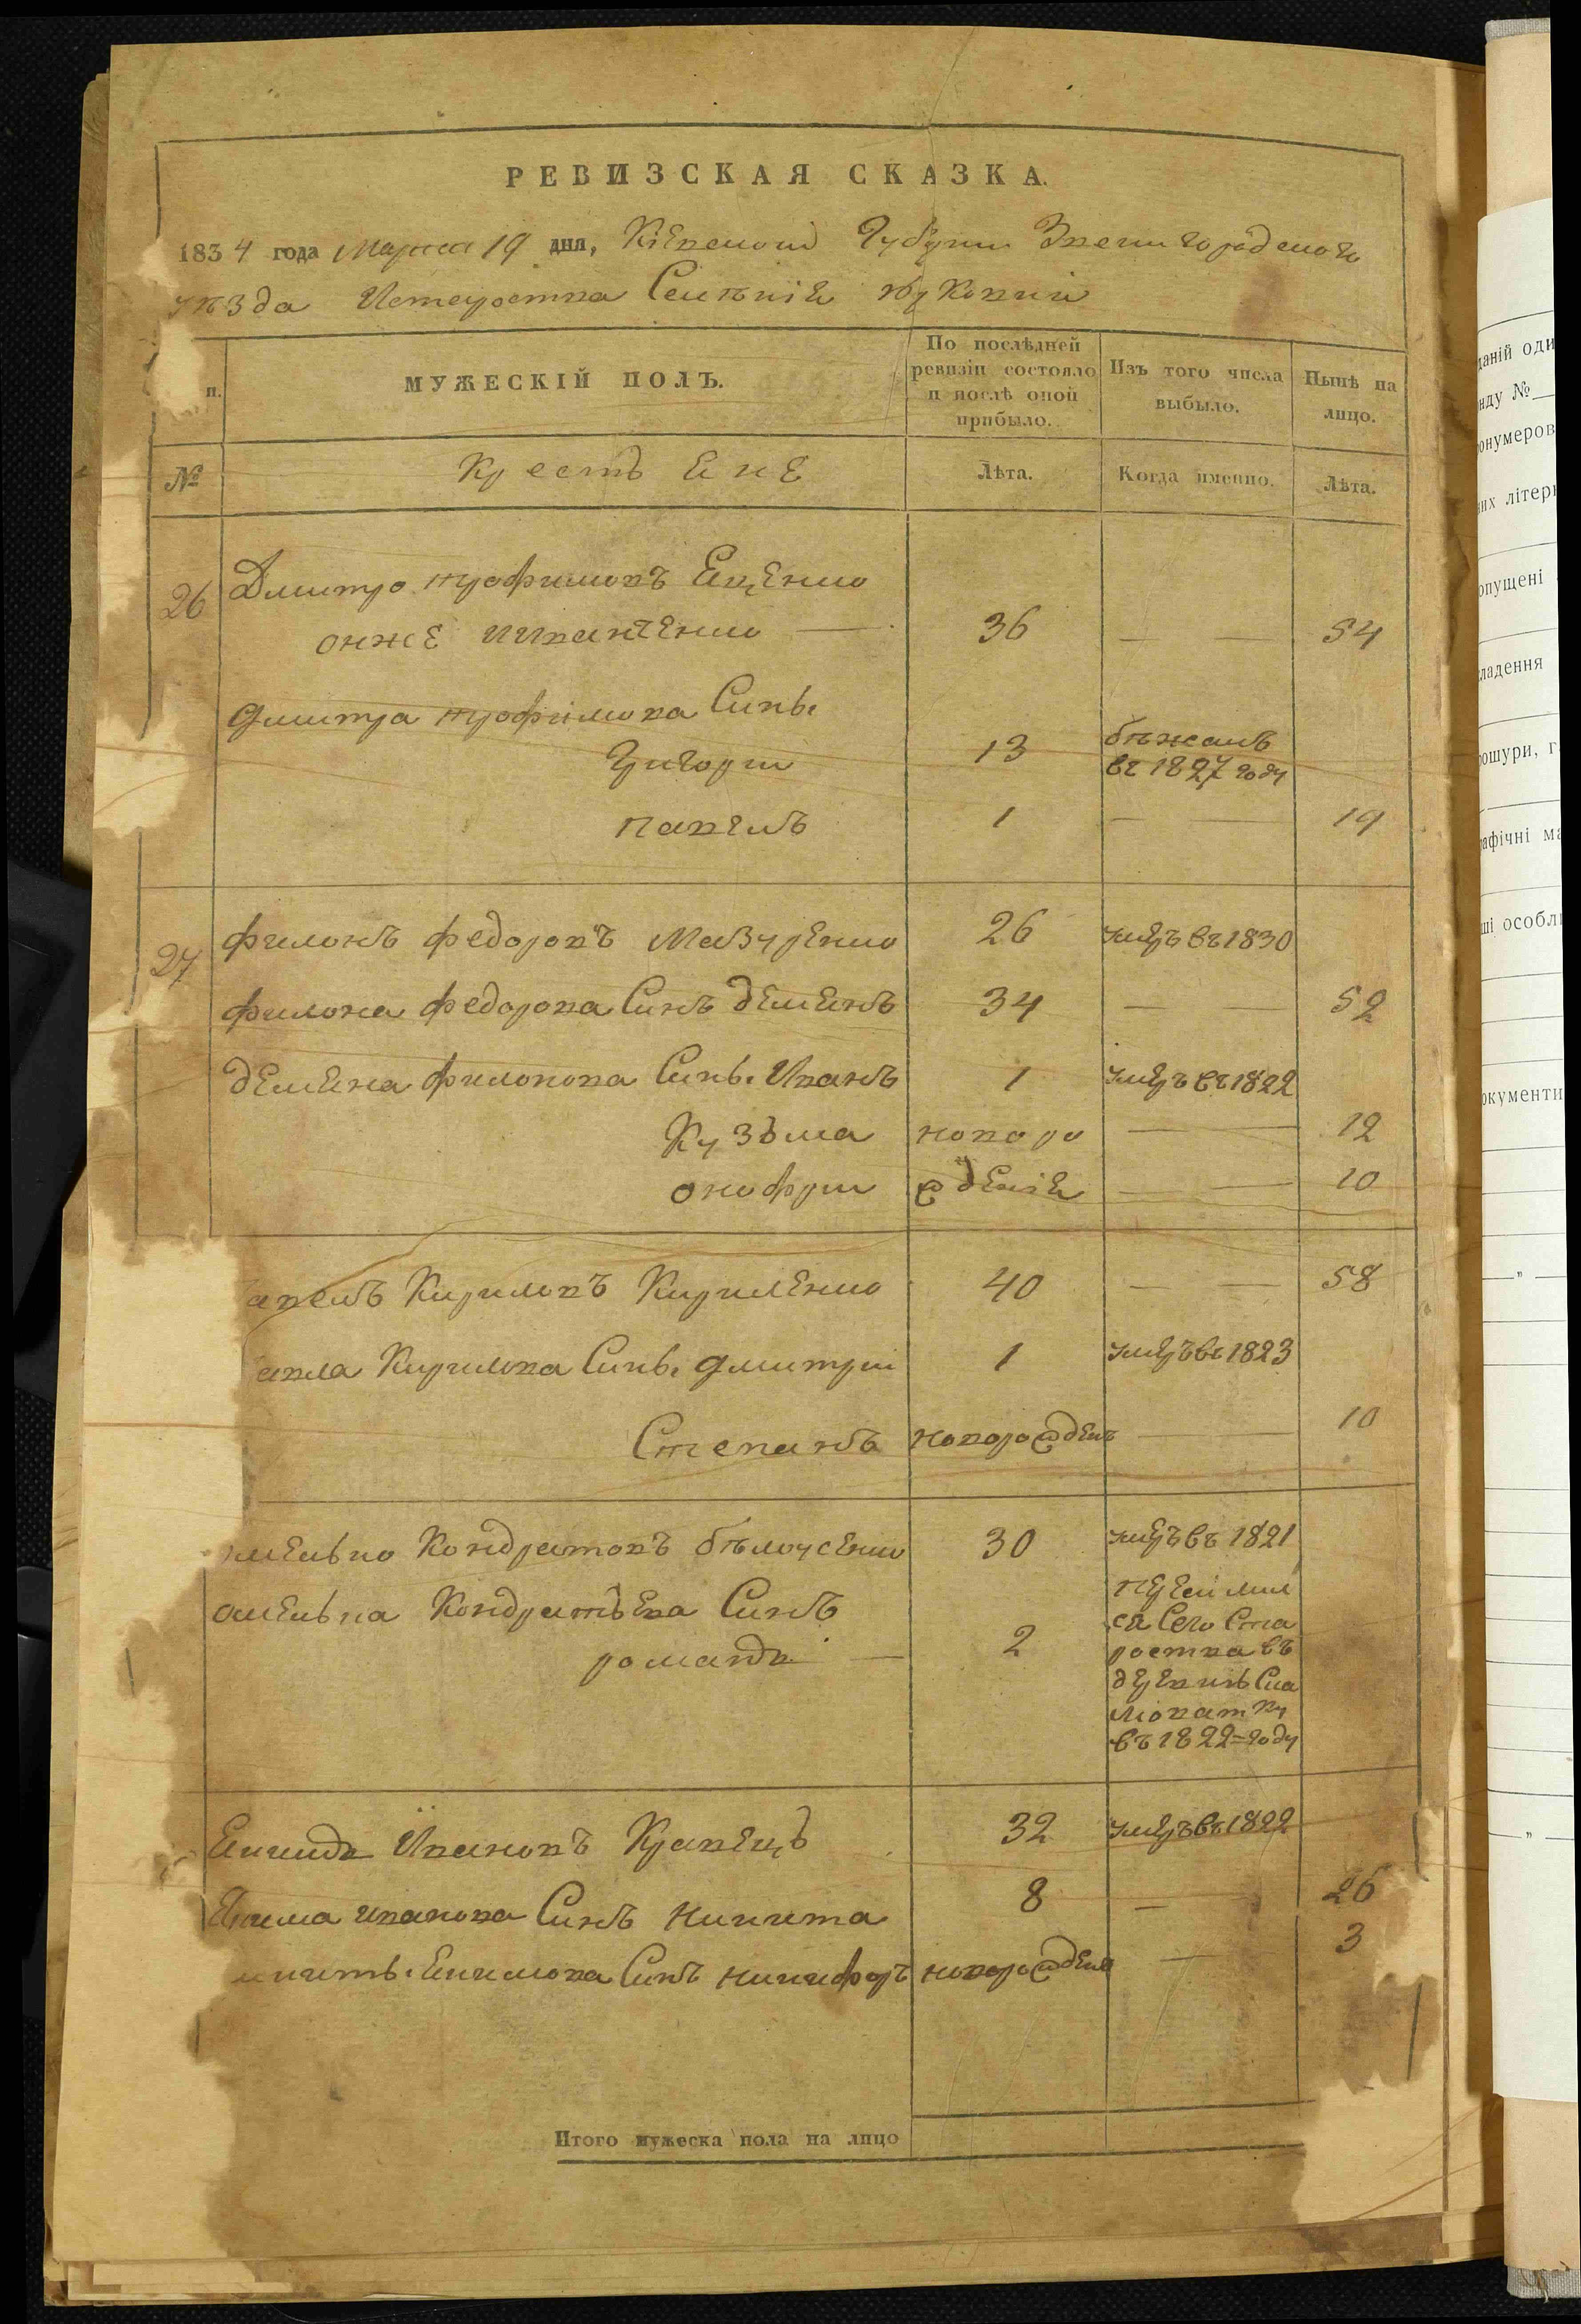 РЕВИЗСКАЯ СКАЗКА.
1834 года Марта 19 дня, Кіевской Губерни Звенигородского
уѣзда
МУЖЕСКІЙ ПОЛЪ.
По послѣдней ревизіи состояло и послѣ оной прибыло.
Изъ того числа выбыло.
Нынѣ на лицо.
№
Лѣта.
Когда именно.
Лѣта.
26 Дмитро трофимовъ
онже иваченко 36 — — 54
Дмитра трофимова Синь.
Григорий 13 бѣжалъ въ 1827 году
павелъ 1 — — 19
27 филонъ федоровъ Мазуренко 26 умеръ въ 1830
филона федорова Синъ деменъ 34 — — 52
демена филонова Синь. Иванъ 1 умеръ въ 1822
Кузьма новоро — 12
онофрий жденіе — — 10
авелъ Кириловъ Кириленко 40 — — 58
авла Кирилова Синь. Дмитрий 1 умеръ въ 1823
Степанъ новорожден — 10
мелько Кондратовъ бѣлоусенко 30 умеръ въ 1821
омелька Кондратьева Синъ
романъ — 2
въ 1822=году
Екимъ Ивановъ Кравецъ 32 умеръ въ 1822
Екима иванова Синъ никита 8 — 26
икиты. Екимова Синъ никифоръ новорожден — 3
Итого мужеска пола на лицо
даній оди
нду №
онумеров
них літер
опущені
ладення
ошури, г
афічні ма
ші особл
окументи
„
„